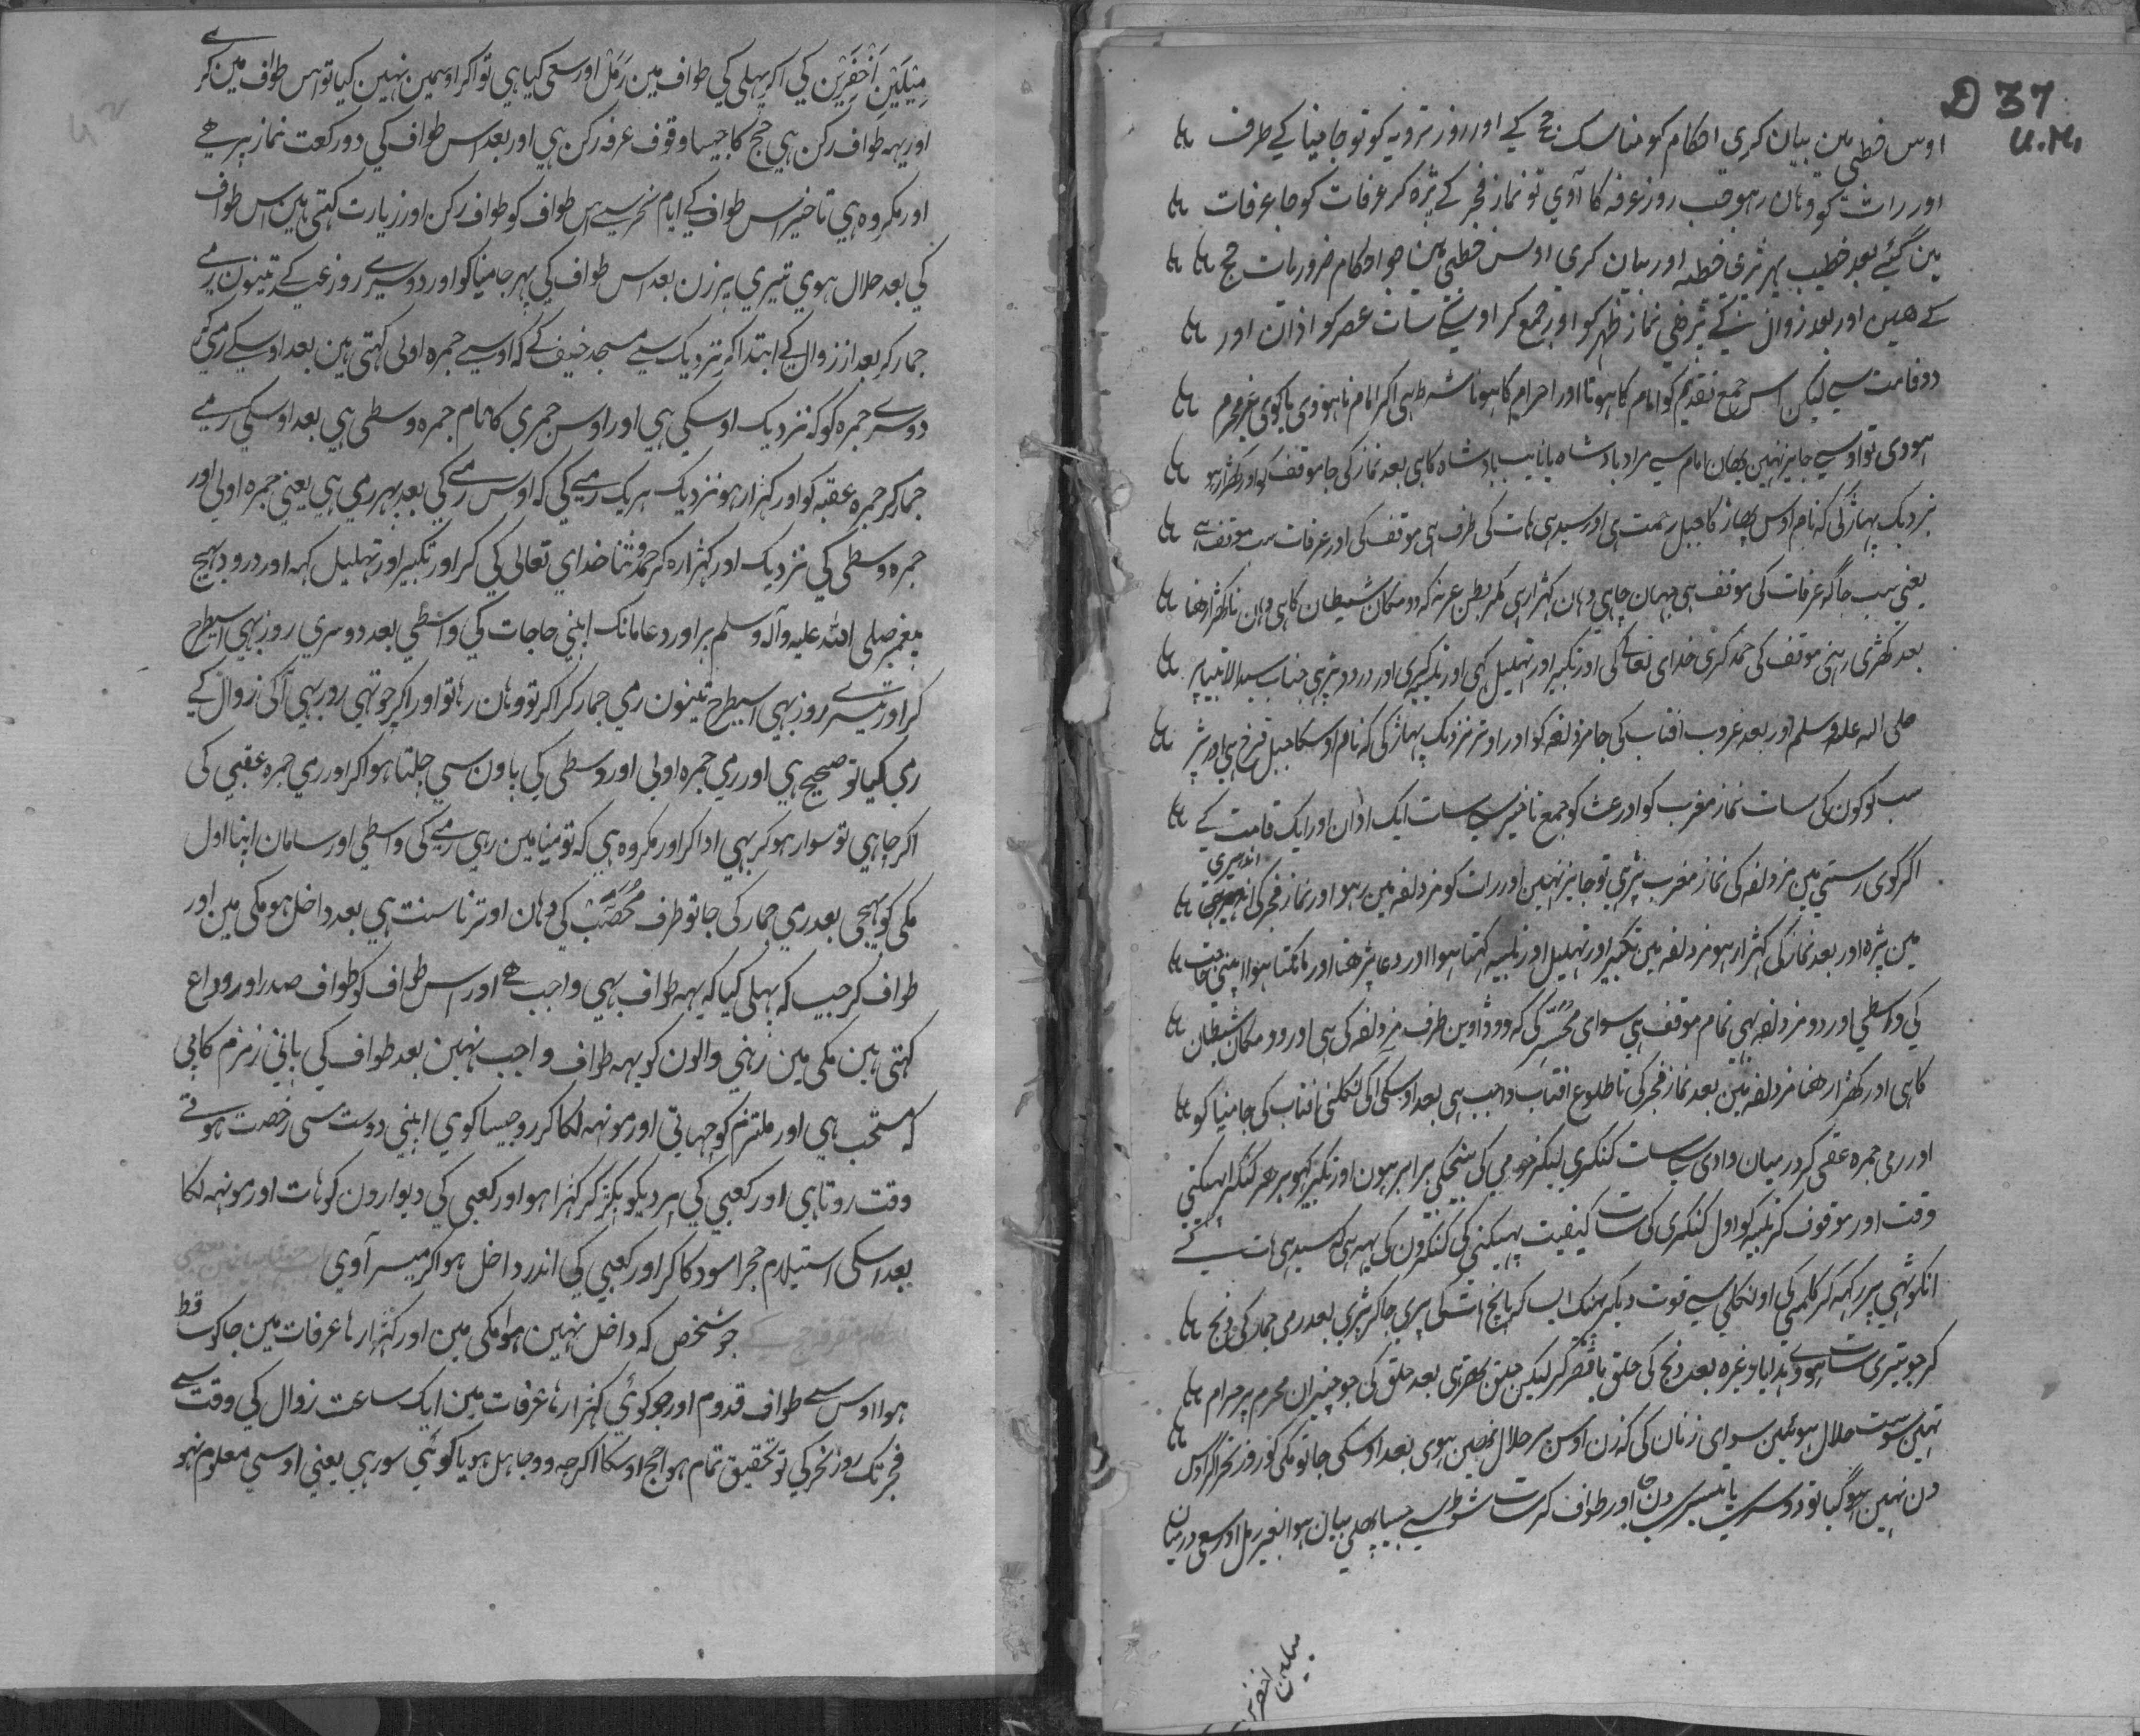 D 37
U.M.
اوس خطبی مین بیان کری احکام کو مناسک حج کے اور روز ترویہ کو تو جا مینا کے طرف
اور رات کو وہان رہو جب روز عرفہ کا آوی تو نماز فجر کے پڑہ کر عرفات کو جا عرفات
مین گئے بعد خطیب پہر پڑی خطبہ اور بیان کری اوس خطبی مین جو احکام ضروریات حج
کے ہین اور بعد زوال کے پڑھی نماز ظہر کو اور جمع کر اوسکے سات عصر کو اذان اور
دو قامت سی لیکن اس جمع تقدیم کو امام کا ہونا اور احرام کا ہونا شرط ہی اکر امام نا ہووی یا کوی غیر محرم
ہووی تو اوسی جایز نہین یہان امام سی مراد بادشاہ یا نایب بادشاہ کا ہی بعد نماز کی جا موقف کو اور کھڑا رہو
نزدیک پہاڑ کی کہ نام اوس پہاڑ کا جبل رحمت ہی اور سیدہی ہات کی طرف ہی موقف کی اور عرفات سب موقف ہی
یعنی سب جاگہ عرفات کی موقف ہی جہان چاہی وہان کہڑا رہی مگر بطن عرنہ کہ وو مکان شیطان کا ہی وہان نا کھڑا رہنا
بعد کھڑی رہنی موقف کی حمد کری خدای تعالی کی اور تکبیر اور تہلیل کہی اور تلبیہ کری اور درود پڑہی جناب سید الانبیا پر
صلی الہ علیہ وسلم اور بعد غروب افتاب کی جا مزدلفہ کو اور اوتر نزدیک پہاڑ کی کہ نام اوسکا جبل قزح ہی اور پڑ
سب لوکون کی سات نماز مغرب کو اور عشا کو جمع تاخیر سی سات ایک اذان اور ایک قامت کے
اکر کوی رستی مین مزدلفہ کی نماز مغرب پڑہی تو جایز نہین اور رات کو مزدلفہ مین رہو اور نماز فجر کی اندہیری
اندہیری
مین پڑہ اور بعد نماز کی کہڑا رہو مزدلفہ مین تکبیر اور تہلیل اور تلبیہ کہتا ہوا اور دعا پڑھتا اور مانکتا ہوا اپنی حاجت
کی واسطی اور وو مزدلفہ بہی تمام موقف ہی سوای محسّر کی کہ وو ڈاوین طرف مزدلفہ کی ہی اور وو مکان شیطان
کا ہی اور کھڑا رھنا مزدلفہ مین بعد نماز فجر کی تا طلوع افتاب واجب ہی بعد اوسکی اکی نکلنی افتاب کی جا مینا کو
اور رمی جمرہ عقبی کر درمیان وادی سی سات کنکری لیکر جو می کی بینجکی برابر ہون اور تکبیر کہو ہر ہر کنکر پہیکتی
وقت اور موقوف کر تلبیہ کو اول کنکری کی سات کیفیت پہیکنی کی کنکرون کی یہہ ہی کہ سیدہی ہات کے
انکوٹہی پر رکہہ کر کلمہ کی اونکلی سی قوت دیکر پہینک ایسا کہ پانچ ہات کی پری جا کر پڑی بعد رمی جمار کی ذبح
کر جو تیری سات ہووی ہدایا وغیرہ بعد ذبح کی حلق یا قصر کر لیکن حلق بہتر ہی بعد حلق کی جو چیزان محرم پر حرام
تہین سو سب حلال ہوئین سوای زنان کی کہ زن اوس پر حلال نہین ہوی بعد اوسکی جا تو مکی کو روز نحر اکر اوس
دن نہین ہو گیا تو دوسری یا تیسری دن جا اور طواف کر سات شوط سی جیسا پہلی بیان ہوا بغیر رمل اور سعی درمیان
میلین اخضرین
مِیْلَیْنِ اَخْضَرَیْن کی اکر پہلی کی طواف مین رَمَل اور سعی کیا ہی تو اکر اوسمین نہین کیا تو اس طواف مین کرے
اور یہہ طواف رکن ہی حج کا جیسا وقوف عرفہ رکن ہی اور بعد اس طواف کی دو رکعت نماز پڑھے
اور مکروہ ہی تاخیر اس طواف کے ایام نحر سی اس طواف کو طواف رکن اور زیارت کہتی ہین اس طواف
کی بعد حلال ہوی تیری پر زن بعد اس طواف کی پہر جا مینا کو اور دوسرے روز عید کے تینون رمے
جمار کر بعد از زوال کے ابتدا کر نزدیک سی مسجد خیف کے کہ اوسی جمرہ اولی کہتی ہین بعد اوسکے رمی کر
دوسرے جمرہ کو کہ نزدیک اوسکی ہی اور اوس جمری کا نام جمرہ وسطی ہی بعد اوسکی رمے
جمار کر جمرہ عقبہ کو اور کہڑا رہو نزدیک ہریک رمے کی کہ اوس رمے کی بعد پہر رمی ہی یعنی جمرہ اولی اور
جمرہ وسطی کی نزدیک اور کہڑا رہ کر حمد و ثنا خدای تعالی کی کر اور تکبیر اور تہلیل کہہ اور درود بہیج
پیغمبر صلی اللہ علیہ وآلہ وسلم پر اور دعا مانک اپنی حاجات کی واسطی بعد دوسری روز بہی اسیطرح
کر اور تیسرے روز بہی اسیطرح تینون رمی جمار کر اکر تو وہان رہا تو اور اکر چوتہی روز بہی اکی زوال کے
رمی کیا تو صحیح ہی اور رمی جمرہ اولی اور وسطی کی پاون سی چلتا ہوا کر اور رمی جمرہ عقبی کی
اکر چاہی تو سوار ہو کر بہی ادا کر اور مکروہ ہی کہ تو مینا مین رہی رمے کی واسطی اور سامان اپنا اول
مکی کو بہیجی بعد رمی جمار کی جا تو طرف مُحَصَّب کی وہان اوترنا سنت ہی بعد داخل ہو مکی مین اور
طواف کر جیسا کہ پہلی کیا کہ یہہ طواف بہی واجب ھے اور اس طواف کو طواف صدر اور وداع
کہتی ہین مکی مین رہنی والون کو یہہ طواف واجب نہین بعد طواف کی پانی زمزم کا پی
کہ مستحب ہی اور ملتزم کو چہاتی اور مونہہ لکا کر رو جیسا کوی اپنی دوست سی رخصت ہوتے
وقت روتا ہی اور کعبی کی پردیکو پکڑ کر کہڑا ہو اور کعبی کی دیوارون کو ہات اور مونہہ لکا
بعد اسکی استیلام حجر اسود کا کر اور کعبی کی اندر داخل ہو اکر میسر آوی
جو شخص کہ داخل نہین ہوا مکی مین اور کہڑا رہا عرفات مین جا کو ساقط
ہوا اوس سے طواف قدوم اور جو کوئی کہڑا رہا عرفات مین ایک ساعت زوال کی وقت سے
فجر تک روز نحر کی تو تحقیق تمام ہوا حج اوسکا اکرچہ وو جاہل ہو یا کوئی سو رہی یعنی اوسی معلوم نہو